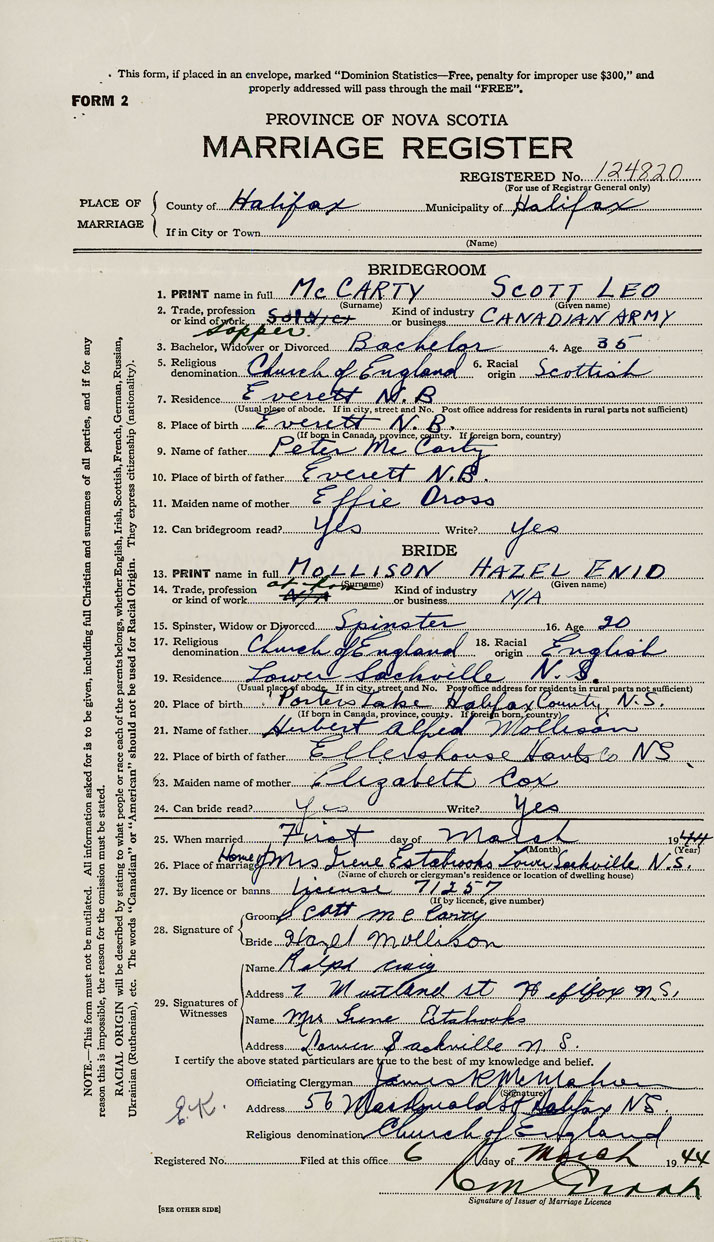 This form, if placed in an envelope, marked "Dominion Statistics—Free, penalty for improper use $300," and
properly addressed will pass through the mail "FREE".
FORM 2
PROVINCE OF NOVA SCOTIA
MARRIAGE REGISTER
REGISTERED No. 124820
(For use of Registrar General only)
PLACE OF MARRIAGE County of Halifax Municipality of Halifax
If in City or Town
(Name)
BRIDEGROOM
1. PRINT name in full McCARTY SCOTT LEO
(Surname) (Given name)
2. Trade, profession or kind of work Soldier Sapper Kind of industry or business CANADIAN ARMY
3. Bachelor, Widower or Divorced Bachelor 4. Age 35
5. Religious denomination Church of England 6. Racial origin Scottish
7. Residence Everett N.B
(Usual place of abode. If in city, street and No. Post office address for residents in rural parts not sufficient)
8. Place of birth Everett N.B.
(If born in Canada, province, county. If foreign born, country)
9. Name of father Peter McCarty
10. Place of birth of father Everett N.B.
11. Maiden name of mother Effie Dross
12. Can bridegroom read? Yes Write? Yes
BRIDE
13. PRINT name in full MOLLISON HAZEL ENID
(Surname) (Given name)
14. Trade, profession or kind of work N/A at home Kind of industry or business N/A
15. Spinster, Widow or Divorced Spinster 16. Age 20
17. Religious denomination Church of England 18. Racial origin English
19. Residence Lower Sackville N.S.
(Usual place of abode. If in city, street and No. Post office address for residents in rural parts not sufficient)
20. Place of birth Porters Lake Halifax County, N.S.
(If born in Canada, province, county. If foreign born, country)
21. Name of father Herbert Alfred Mollison
22. Place of birth of father Ellershouse Hants Co NS
23. Maiden name of mother Elizabeth Cox
24. Can bride read? Yes Write? Yes
25. When married First day of March 1944
(Month) (Year)
26. Place of marriage Home of Mrs Irene Estabrooks Lower Sackville N.S.
(Name of church or clergyman's residence or location of dwelling house)
27. By licence or banns License 71257
(If by licence, give number)
28. Signature of Groom Scott McCarty
Bride Hazel Mollison
29. Signatures of Witnesses Name Ralph Craig
Address 7 Maitland St Halifax N.S.
Name Mrs Irene Estabrooks
Address Lower Sackville N.S.
I certify the above stated particulars are true to the best of my knowledge and belief.
Officiating Clergyman James R McMahon
(Signature)
Address 56 MacDonald St Halifax NS.
Religious denomination Church of England
Registered No. Filed at this office 6 day of March 1944
Signature of Issuer of Marriage Licence
[SEE OTHER SIDE]
E.K.
NOTE.—This form must not be mutilated. All information asked for is to be given, including full Christian and surnames of all parties, and if for any
reason this is impossible, the reason for the omission must be stated.
RACIAL ORIGIN will be described by stating to what people or race each of the parents belongs, whether English, Irish, Scottish, French, German, Russian,
Ukrainian (Ruthenian), etc. The words "Canadian" or "American" should not be used for Racial Origin. They express citizenship (nationality).